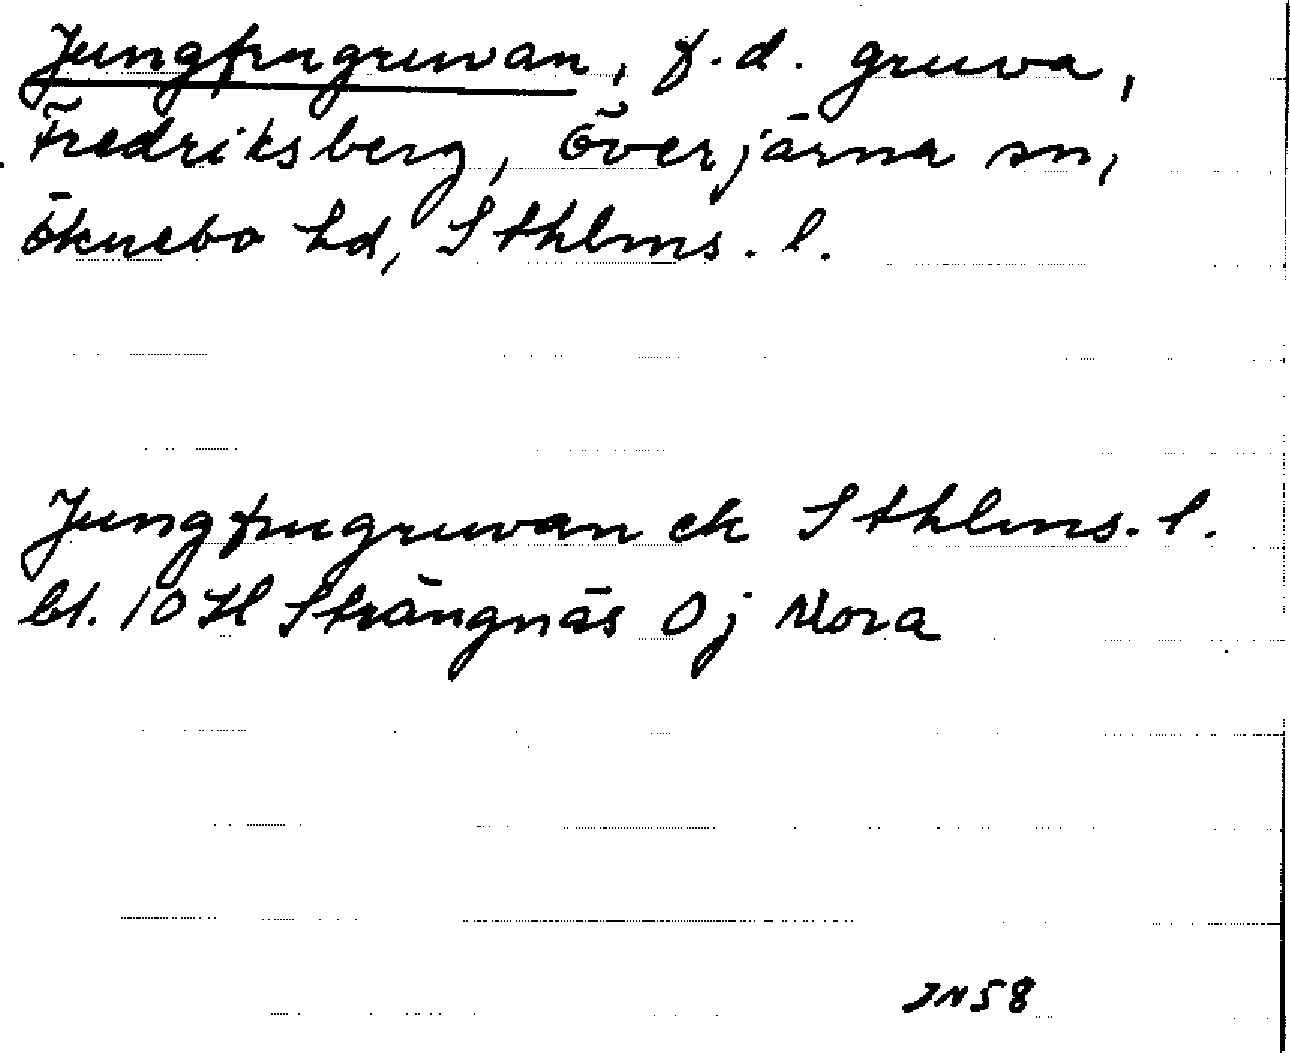 Jungfrugruvan, f.d. gruva,
Fredriksberg, Överjärna sn,
Öknebo hd, Sthlms. l.
Jungfrugruvan ek Sthlms. l.
bl. 10 H Strängnäs Oj Nora
JN58